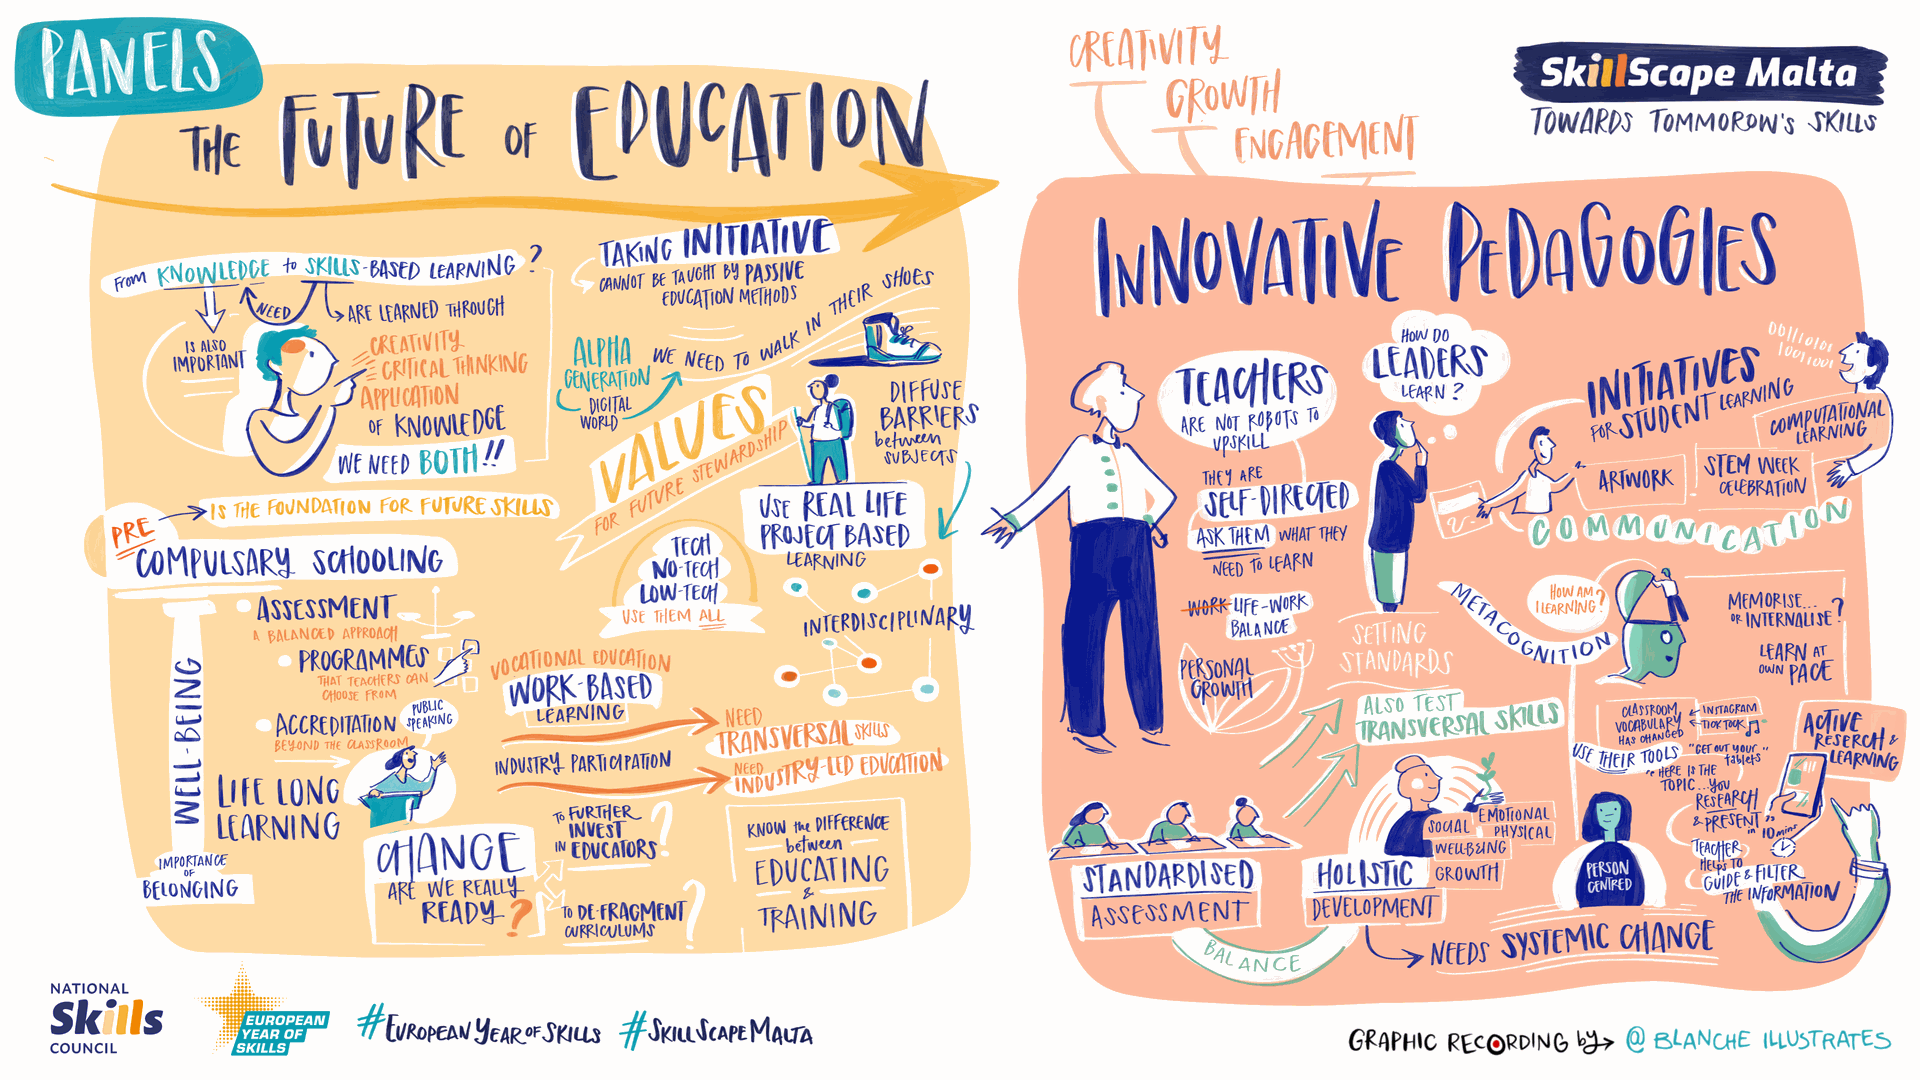 PANELS
THE FUTURE OF EDUCATION
FROM KNOWLEDGE to SKILLS-BASED LEARNING ?
NEED
IS ALSO
IMPORTANT
ARE LEARNED THROUGH
CREATIVITY
CRITICAL THINKING
APPLICATION
OF KNOWLEDGE
WE NEED BOTH!!
TAKING INITIATIVE
CANNOT BE TAUGHT BY PASSIVE
EDUCATION METHODS
ALPHA
GENERATION
DIGITAL
WORLD
WE NEED TO WALK IN THEIR SHOES
VALUES
FOR FUTURE STEWARDSHIP
DIFFUSE
BARRIERS
between
SUBJECTS
USE REAL LIFE
PROJECT BASED
LEARNING
INTERDISCIPLINARY
TECH
NO-TECH
LOW-TECH
USE THEM ALL
PRE
IS THE FOUNDATION FOR FUTURE SKILLS
COMPULSARY SCHOOLING
WELL-BEING
ASSESSMENT
A BALANCED APPROACH
PROGRAMMES
THAT TEACHERS CAN
CHOOSE FROM
ACCREDITATION
BEYOND THE CLASSROOM
PUBLIC
SPEAKING
LIFE LONG
LEARNING
IMPORTANCE
OF
BELONGING
VOCATIONAL EDUCATION
WORK-BASED
LEARNING
INDUSTRY PARTICIPATION
NEED
TRANSVERSAL SKILLS
NEED
INDUSTRY-LED EDUCATION
CHANGE
ARE WE REALLY
READY ?
TO FURTHER
INVEST
IN EDUCATORS ?
TO DE-FRAGMENT
CURRICULUMS ?
KNOW the DIFFERENCE
between
EDUCATING
&
TRAINING
NATIONAL
Skills
COUNCIL
EUROPEAN
YEAR OF
SKILLS
#EUROPEAN YEAR OF SKILLS #SKILLSCAPEMALTA
CREATIVITY
GROWTH
ENGAGEMENT
SkillScape Malta
TOWARDS TOMMOROW'S SKILLS
INNOVATIVE PEDAGOGIES
TEACHERS
ARE NOT ROBOTS TO
UPSKILL
THEY ARE
SELF-DIRECTED
ASK THEM WHAT THEY
NEED TO LEARN
WORK LIFE-WORK
BALANCE
PERSONAL
GROWTH
HOW DO
LEADERS
LEARN ?
SETTING
STANDARDS
ALSO TEST
TRANSVERSAL SKILLS
INITIATIVES
FOR STUDENT LEARNING
00111010 1
1001 1001
COMPUTATIONAL
LEARNING
ARTWORK
STEM WEEK
CELEBRATION
COMMUNICATION
METACOGNITION
HOW AM
I LEARNING?
MEMORISE...
OR INTERNALISE ?
LEARN AT
OWN PACE
CLASSROOM
VOCABULARY
HAS CHANGED
INSTAGRAM
TICK TOCK
USE THEIR TOOLS
"GET OUT YOUR
tablets"
"HERE IS THE
TOPIC...YOU
RESEARCH
& PRESENT"
in 10 mins
ACTIVE
RESERCH &
LEARNING
TEACHER
HELPS TO
GUIDE & FILTER
THE INFORMATION
STANDARDISED
ASSESSMENT
BALANCE
HOLISTIC
DEVELOPMENT
SOCIAL
EMOTIONAL
PHYSICAL
WELLBEING
GROWTH
PERSON
CENTRED
NEEDS SYSTEMIC CHANGE
GRAPHIC RECORDING by @ BLANCHE ILLUSTRATES